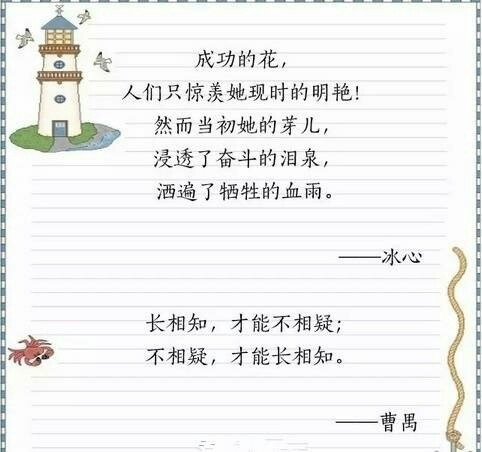 成功的花，
人们只惊羡她现时的明艳！
然而当初她的芽儿，
浸透了奋斗的泪泉，
洒遍了牺牲的血雨。
——冰心
长相知，才能不相疑；
不相疑，才能长相知。
——曹禺